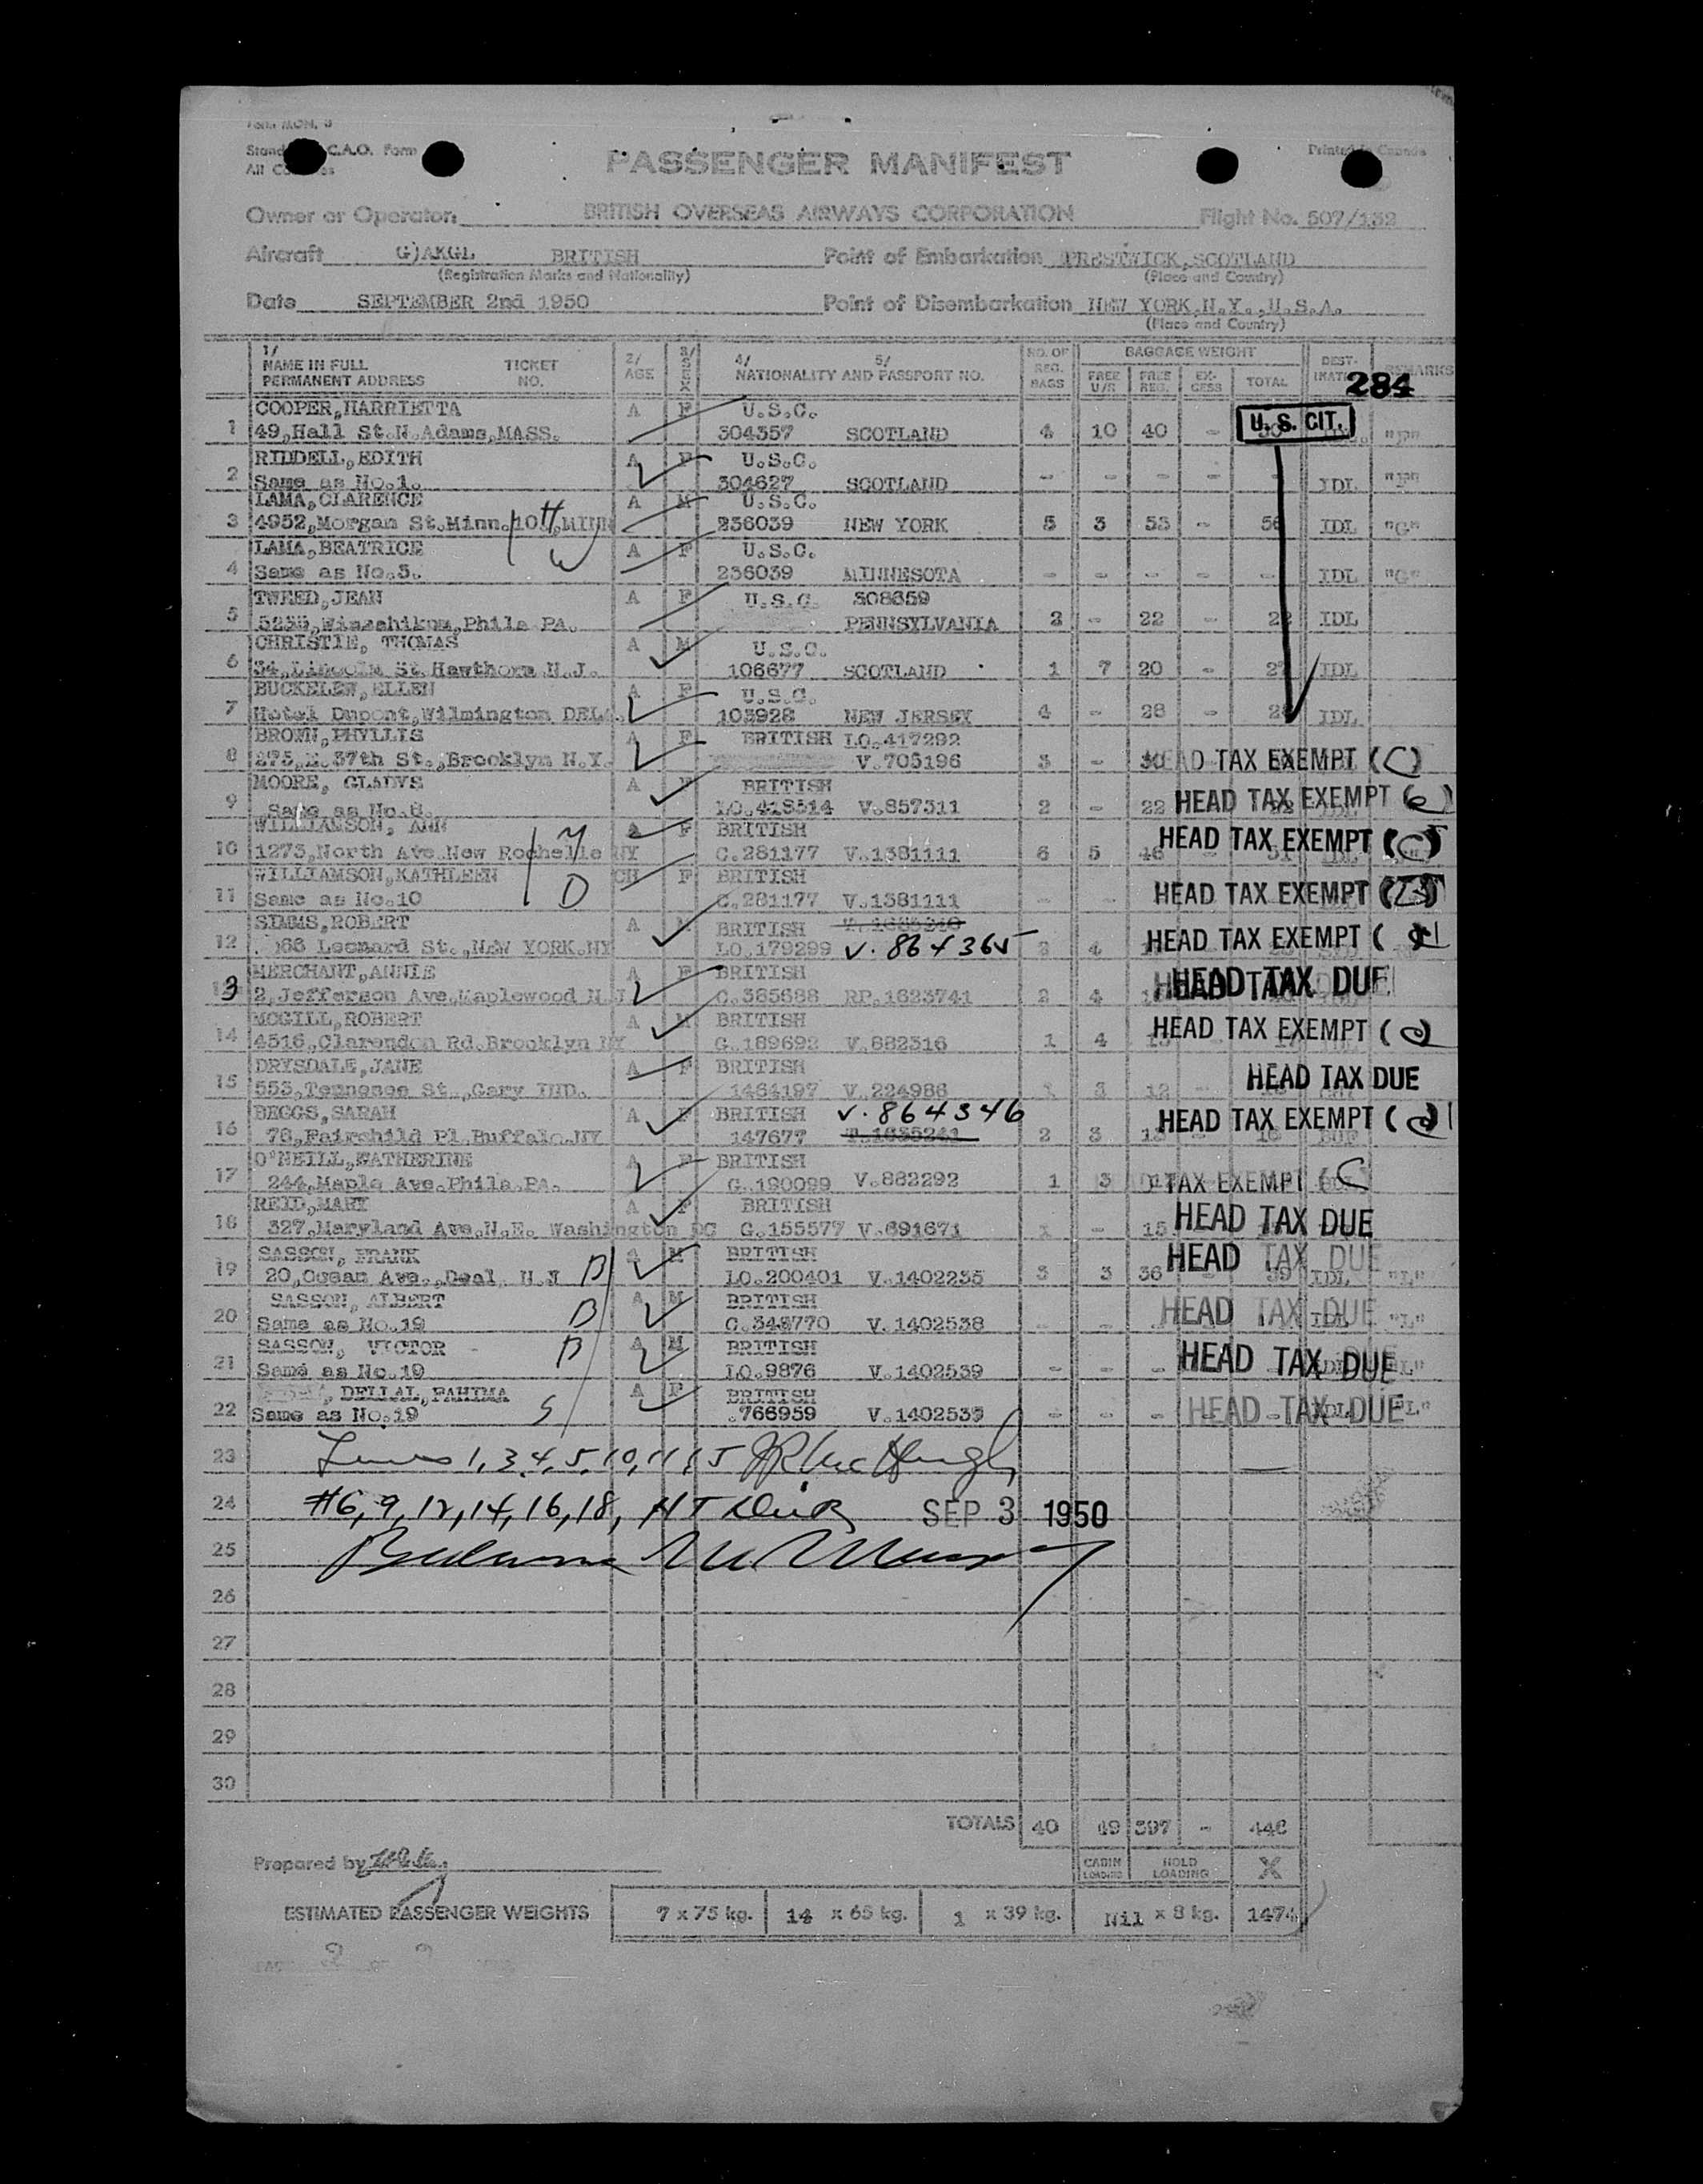 Form
Stand C.A.O. Form
All Co es
Printed in Canada
PASSENGER MANIFEST
Owner or Operator BRITISH OVERSEAS AIRWAYS CORPORATION Flight No. 507/132
Aircraft G)AKGL BRITISH Point of Embarkation PRESTWICK,SCOTLAND
(Registration Marks and Nationality) (Place and Country)
Date SEPTEMBER 2nd 1950 Point of Disembarkation NEW YORK,N.Y.,U.S.A.
(Place and Country)
1/ NAME IN FULL TICKET 2/ AGE 3/ SEX 4/ 5/ NO. OF REG. BAGS BAGGAGE WEIGHT DEST- REMARKS
PERMANENT ADDRESS NO. NATIONALITY AND PASSPORT NO. FREE U/R FREE REG. EX- CESS TOTAL
284
COOPER,HARRIETTA A F U.S.C.
1 49,Hall St.N.Adams,MASS. 304357 SCOTLAND 4 10 40 - U. S. CIT.
RIDDELL,EDITH A F U.S.C.
2 Same as No.1. 304627 SCOTLAND - - - - - IDL
LAMA,CLARENCE A M U.S.C.
3 4952,Morgan St.Minn.10,MINN H 236039 NEW YORK 5 3 53 - 56 IDL "G"
LAMA,BEATRICE W A F U.S.C.
4 Same as No.3. 236039 MINNESOTA - - - - - IDL "G"
TWEED,JEAN A F U.S.C. 308659
5 PENNSYLVANIA 2 - 22 - 22 IDL
CHRISTIE, THOMAS A M U.S.C.
6 34,Lincoln St.Hawthorn.N.J. 106677 SCOTLAND 1 7 20 - 27 IDL
BUCKELEW,ELLEN A F U.S.C.
7 Hotel Dupont,Wilmington DEL. 103928 NEW JERSEY 4 - 28 - 28 IDL
BROWN,PHYLLIS A F BRITISH LO.417292
8 275,E.37th St.,Brooklyn N.Y. V.705196 3 - 30 HEAD TAX EXEMPT (C)
MOORE, GLADYS A F BRITISH
9 Same as No.8. LO.418514 V.857311 2 - 22 HEAD TAX EXEMPT (C)
WILLIAMSON, ANN M A F BRITISH
10 1273,North Ave.New Rochelle NY C.281177 V.1381111 6 5 46 HEAD TAX EXEMPT (C)
WILLIAMSON,KATHLEEN D CH F BRITISH
11 Same as No.10 C.281177 V.1381111 - - HEAD TAX EXEMPT
SIMMS,ROBERT A M BRITISH
12 66 Leonard St.,NEW YORK.NY LO.179299 V.864365 3 4 HEAD TAX EXEMPT
MERCHANT,ANNIE A F BRITISH
13 2,Jefferson Ave.Maplewood N J C.385688 RP.1623741 2 4 HEAD TAX DUE
MCGILL,ROBERT A M BRITISH
14 4516,Clarendon Rd.Brooklyn NY G.189692 V.882316 1 4 HEAD TAX EXEMPT
DRYSDALE,JANE A F BRITISH
15 553,Tennesee St.,Gary IND. 1464197 V.224986 1 3 12 - HEAD TAX DUE
BEGGS,SARAH A F BRITISH V.864346
16 78,Fairchild Pl.Buffalo.NY 147677 T.1635241 2 3 13 HEAD TAX EXEMPT
O'NEILL,KATHERINE A F BRITISH
17 244,Maple Ave.Phila.PA. G.190099 V.882292 1 3 TAX EXEMPT (C
REID,MARY A F BRITISH
18 327,Maryland Ave,N.E. Washington DC G.155577 V.691671 1 - 15 HEAD TAX DUE
SASSON, FRANK A M BRITISH
19 20,Ocean Ave.,Deal, N.J B LO.200401 V.1402235 3 3 36 - 39 IDL "L" HEAD TAX DUE
SASSON, ALBERT A M BRITISH
20 Same as No.19 B V.1402538 - - HEAD TAX DUE IDL "L"
SASSON, VICTOR - B A M BRITISH
21 Same as No.19 LO.9876 V.1402539 - - - HEAD TAX DUE
DELLAL,FAHIMA A F BRITISH
22 Same as No.19 S .766959 V.1402535 - - - HEAD TAX DUE
23 Lines 1,3,4,5,10,11,15
24 #6,9,12,14,16,18, HT SEP 3 1950
25
26
27
28
29
30
TOTALS 40 49 397 - 446
Prepared by CABIN LOADING HOLD LOADING X
ESTIMATED PASSENGER WEIGHTS 7 x 75 kg. 14 x 65 kg. 1 x 39 kg. Nil x 8 kg. 1474